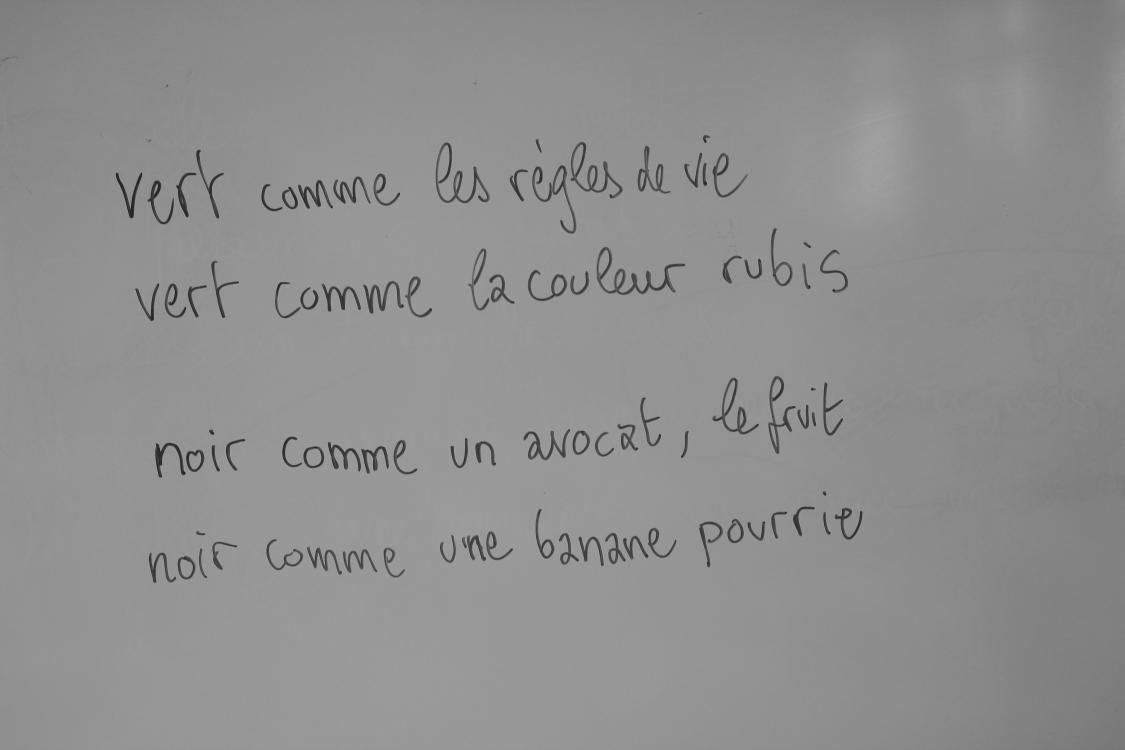 vert comme les règles de vie
vert comme la couleur rubis
noir comme un avocat, le fruit
noir comme une banane pourrie